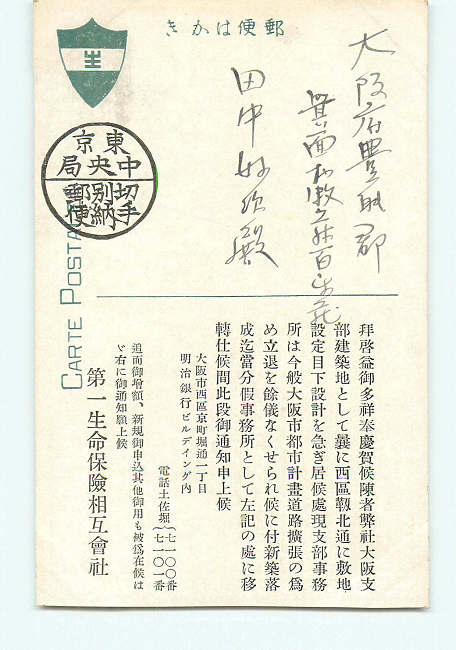 郵便はかき
生
東京
中央局
切手
別納
郵便
CARTE POSTALE
大阪府豊能郡
箕面村
田中
殿
拜啓益御多祥奉慶賀候陳者弊社大阪支
部建築地として曩に西區靱北通に敷地
設定目下設計を急ぎ居候處現支部事務
所は今般大阪市都市計畫道路擴張の爲
め立退を餘儀なくせられ候に付新築落
成迄當分假事務所として左記の處に移
轉仕候間此段御通知申上候
大阪市西區京町堀通一丁目
明治銀行ビルデイング內
電話土佐堀{七一〇〇番
七一〇一番
追而御增額、新規御申込其他御用も被爲在候は
ゞ右に御通知願上候
第一生命保險相互會社